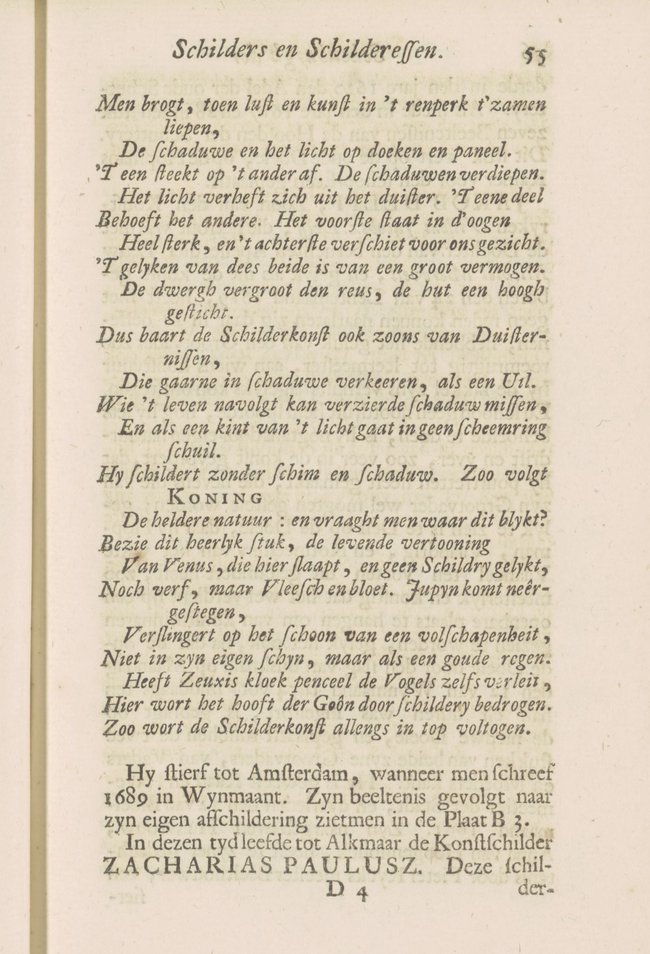 Schilders en Schilderessen. 55
Men brogt, toen lust en kunst in 't renperk t'zamen
liepen,
De schaduwe en het licht op doeken en paneel.
'T een steekt op 't ander af. De schaduwen verdiepen.
Het licht verheft zich uit het duister. 'T eene deel
Behoeft het andere. Het voorste staat in d'oogen
Heel sterk, en 't achterste verschiet voor ons gezicht.
'T gelyken van dees beide is van een groot vermogen.
De dwergh vergroot den reus, de hut een hoogh
gesticht.
Dus baart de Schilderkonst ook zoons van Duister-
nissen,
Die gaarne in schaduwe verkeeren, als een Uil.
Wie 't leven navolgt kan verzierde schaduw missen,
En als een kint van 't licht gaat in geen scheemring
schuil.
Hy schildert zonder schim en schaduw. Zoo volgt
KONING
De heldere natuur : en vraaght men waar dit blykt?
Bezie dit heerlyk stuk, de levende vertooning
Van Venus, die hier slaapt, en geen Schildry gelykt,
Noch verf, maar Vleesch en bloet. Jupyn komt neêr-
gestegen,
Verslingert op het schoon van een volschapenheit,
Niet in zyn eigen schyn, maar als een goude regen.
Heeft Zeuxis kloek penceel de Vogels zelfs verleit,
Hier wort het hooft der Goôn door schildery bedrogen.
Zoo wort de Schilderkonst allengs in top voltogen.
Hy stierf tot Amsterdam, wanneer men schreef
1689 in Wynmaant. Zyn beeltenis gevolgt naar
zyn eigen afschildering zietmen in de Plaat B 3.
In dezen tyd leefde tot Alkmaar de Konstschilder
ZACHARIAS PAULUSZ. Deze schil-
D 4 der-